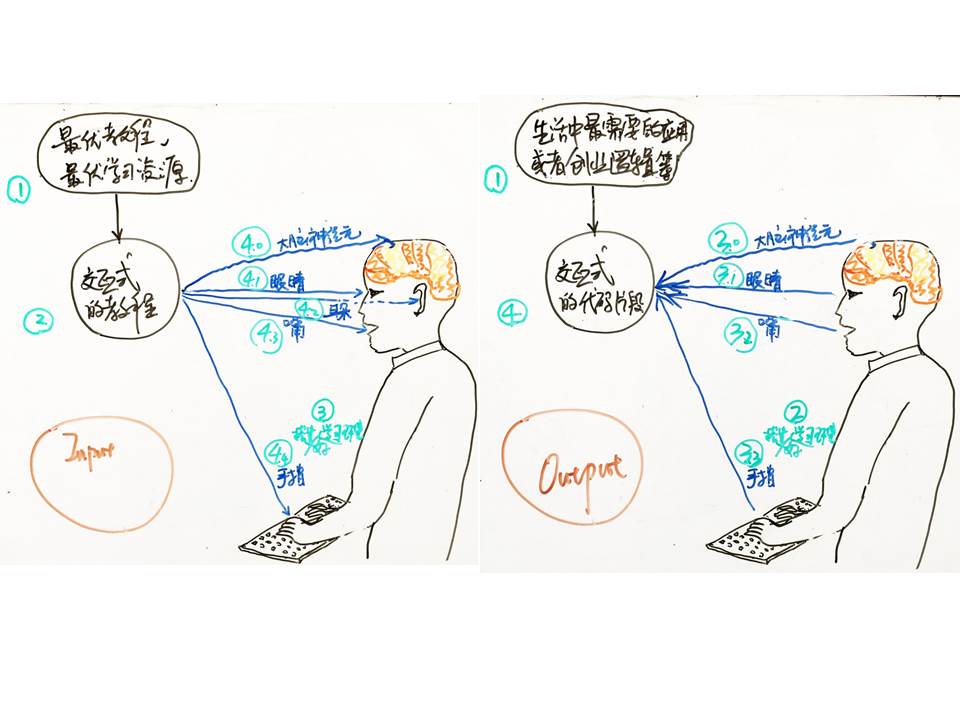 最优教程、
最优学习资源
①
交互式
的教程
②
4.0 大脑神经元
4.1 眼睛
4.2 耳朵
4.3 嘴
③
学习环境
4.4
手指
Input
生活中最需要的应用
或者创业逻辑等
①
交互式
的代码片段
④
3.0 大脑神经元
3.1 眼睛
3.2 嘴
②
学习环境
3.3
手指
Output